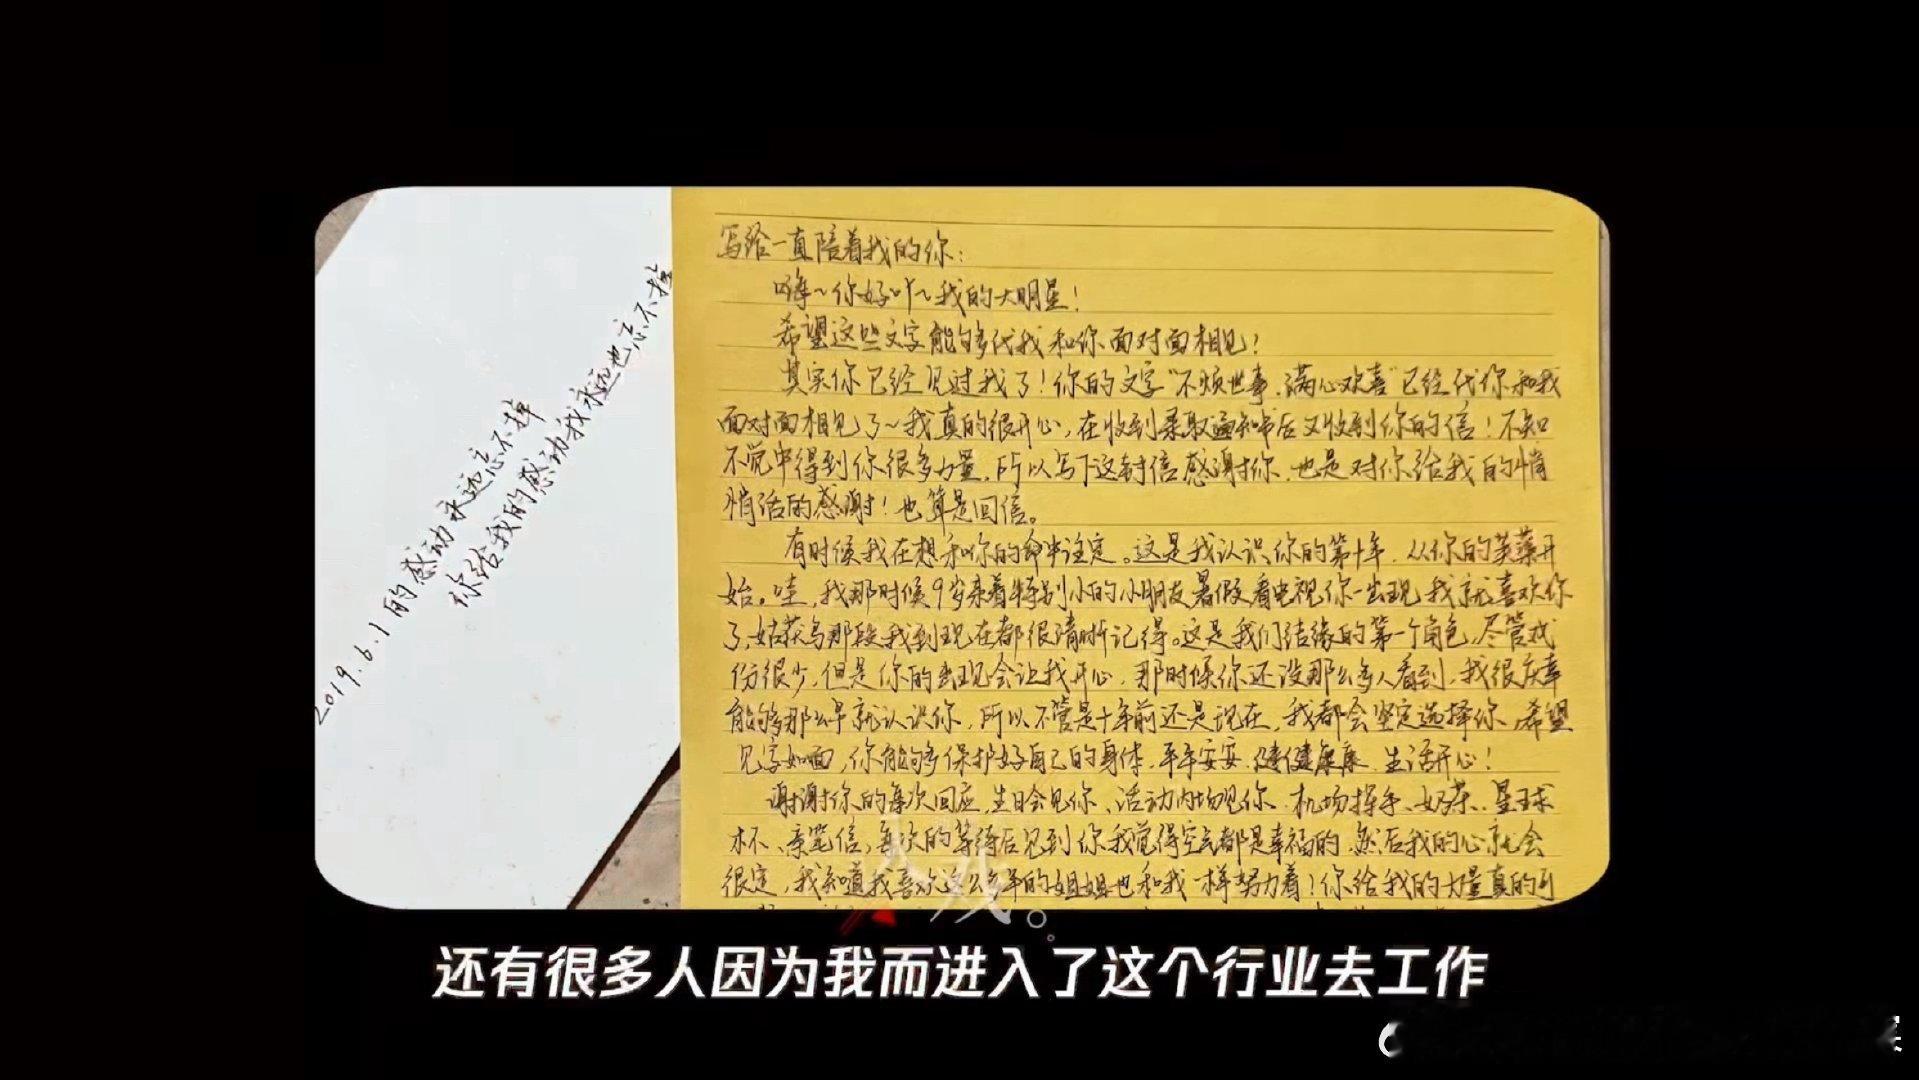 2019.6.1的感动永远忘不掉
你给我的感动我永远也忘不掉
写给一直陪着我的你:
嗨~你好吖~我的大明星!
希望这些文字能够代我和你面对面相见!
其实你已经见过我了!你的文字"不烦世事,满心欢喜"已经代你和我
面对面相见了~我真的很开心,在收到录取通知书后又收到你的信!不知
不觉中得到你很多力量,所以写下这封信感谢你,也是对你给我的悄
悄话的感谢!也算是回信。
有时候我在想和你的命中注定。这是我认识你的第十年,从你的芙蕖开
始。哇,我那时候9岁亲着特别小的小朋友暑假看电视你一出现我就喜欢你
了,姑获鸟那段我到现在都很清晰记得。这是我们结缘的第一个角色,尽管戏
份很少,但是你的出现会让我开心,那时候你还没那么多人看到,我很庆幸
能够那么早就认识你,所以不管是十年前还是现在,我都会坚定选择你,希望
见字如面,你能够保护好自己的身体,平平安安,健健康康,生活开心!
谢谢你的每次回应,生日会见你、活动内场见你、机场挥手、奶茶、星球
杯、亲笔信,每次的等待后见到你我觉得空气都是幸福的,然后我的心就会
很定,我知道我喜欢这么多年的姐姐也和我一样努力着!你给我的力量真的可
戏。
还有很多人因为我而进入了这个行业去工作